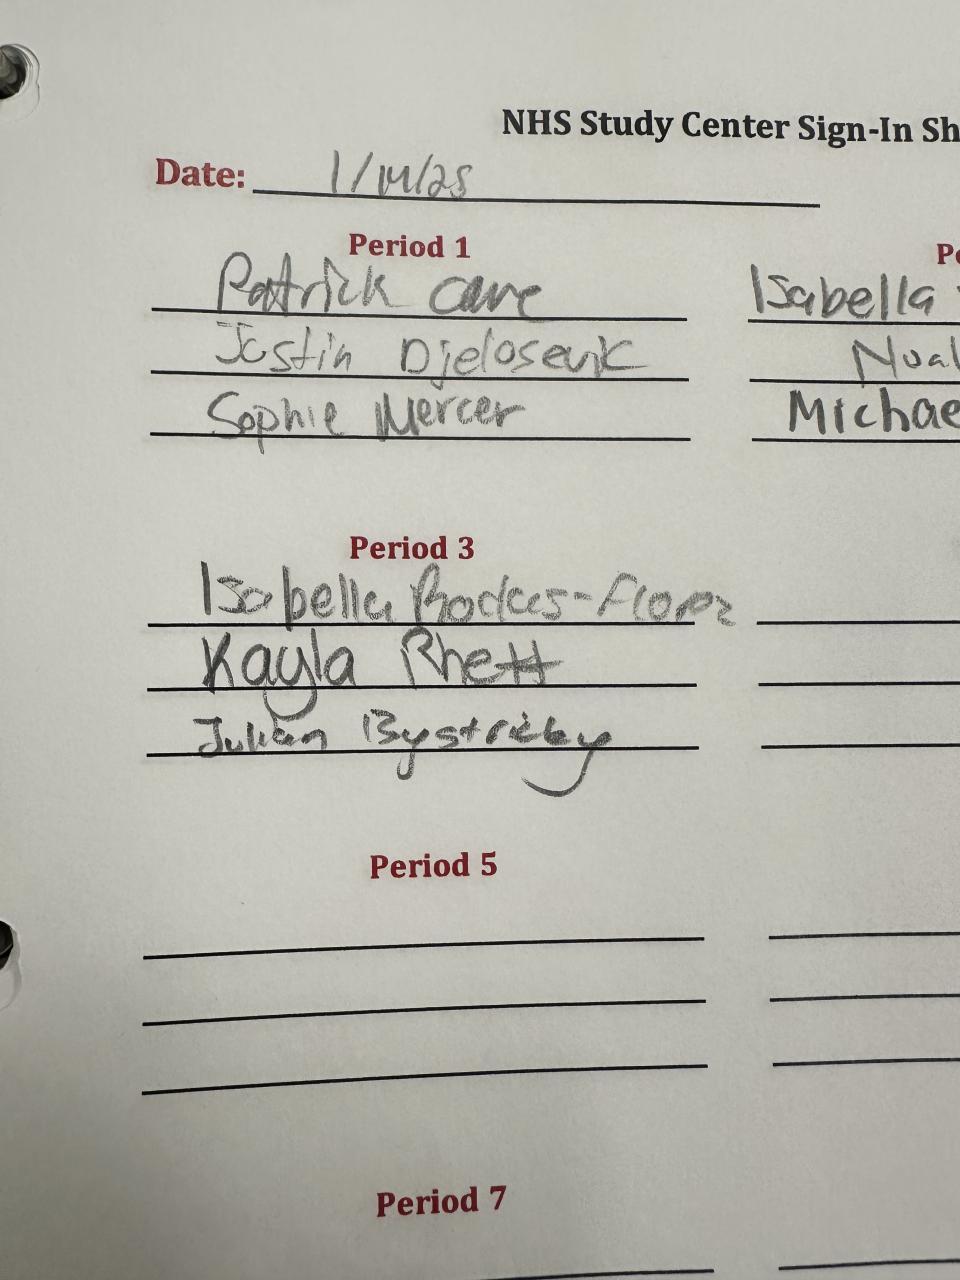 NHS Study Center Sign-In Sh
Date: 1/14/25
Period 1
Patrick Cane
Justin Djelosevic
Sophie Mercer
Pe
Isabella
Nual
Michae
Period 3
Isabella
Kayla Rhett
Julian Bystricky
Period 5
Period 7